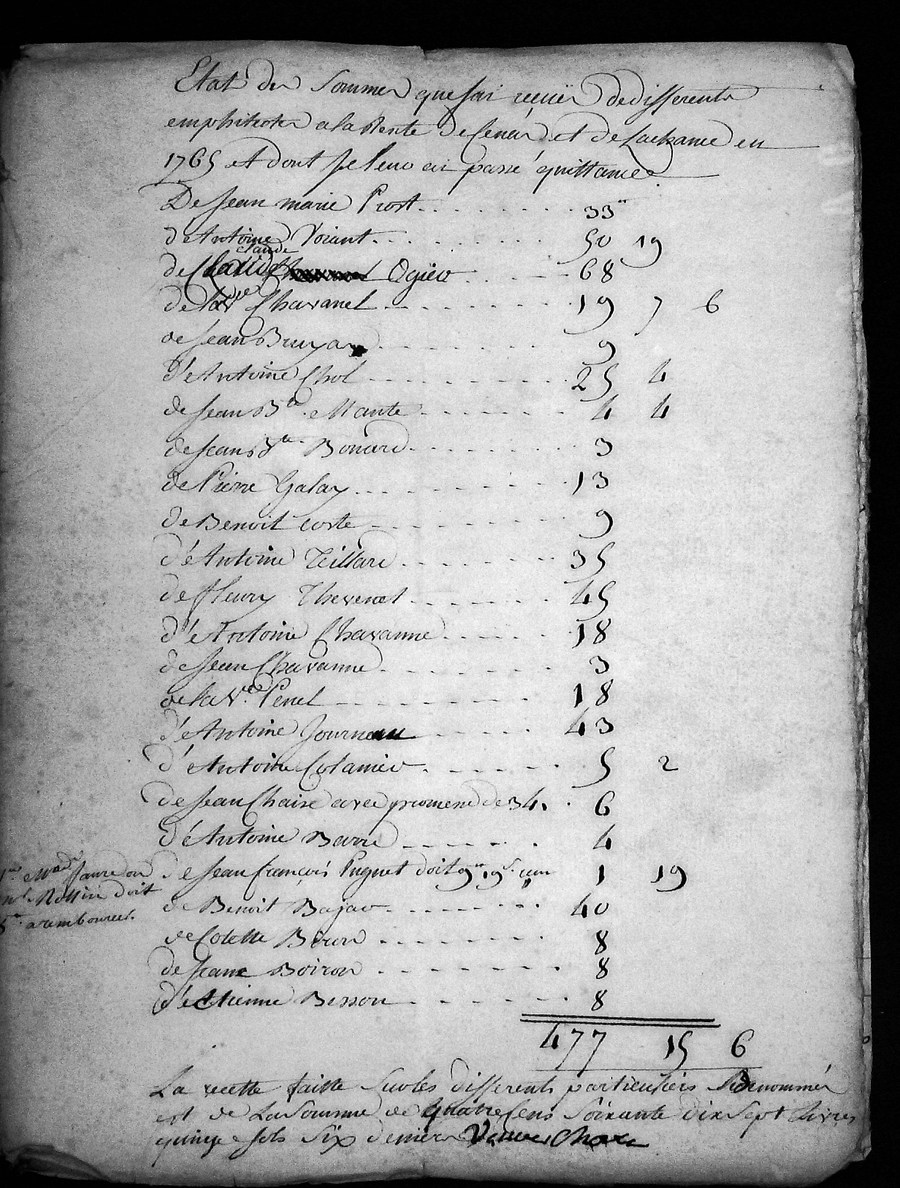 Etat des sommes que j'ai reçües de differents
emphiteotes a la Rente de Cenas et de Lachance en
1765 et dont je leur ai passé quittances
De Jean marie Prost 33"
d'Antoine Voiant 50 19
de Claude Claude Ogier 68
de la Ve Chavanel 19 7 6
de Jean Bruyas 9
d'Antoine Chol 25 4
de Jean Bte Mante 4 4
de Jean Bte Bonard 3
de Pierre Galay 13
de Benoit Coste 9
d'Antoine Teillard 35
de fleury Thevenet 45
d'Antoine Chavanne 18
de Jean Chavanne 3
de la Ve Penel 18
d'Antoine Journeau 43
d'Antoine Colamier 5 2
de Jean Chaise avec promesse de 34 6
d'Antoine Barre 4
de Jean françois Puynet doit 9" 19s 1 19
de Benoit Bajar 40
de Colette Beun 8
de Jeane Boiron 8
d'Etienne Besson 8
477 15 6
La recette faitte sur les differents particuliers
est de La somme de quatre cens soixante dix sept Livres
quinze sols six deniers
doit
a rembourcer